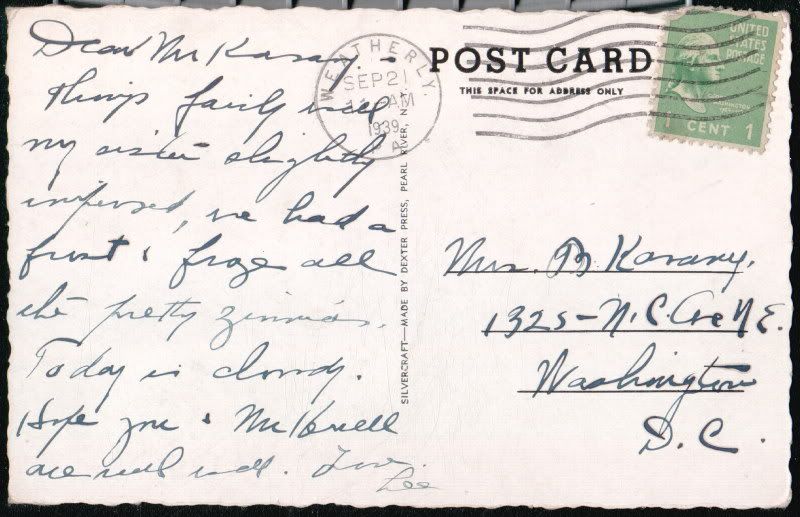 Dear Mr Karany. -
things fairly well
my sister slightly
improved, we had a
frost & froze all
the pretty zinnias.
Today is cloudy.
Hope you &
are real well. Love.
Lee
WEATHERLY,
SEP 21
AM
1939
PA
POST CARD
THIS SPACE FOR ADDRESS ONLY
UNITED
STATES
POSTAGE
WASHINGTON
1 CENT 1
SILVERCRAFT—MADE BY DEXTER PRESS, PEARL RIVER, N.Y.
Mrs. B Karany.
1325- N.C. Ave N.E.
Washington
D.C.